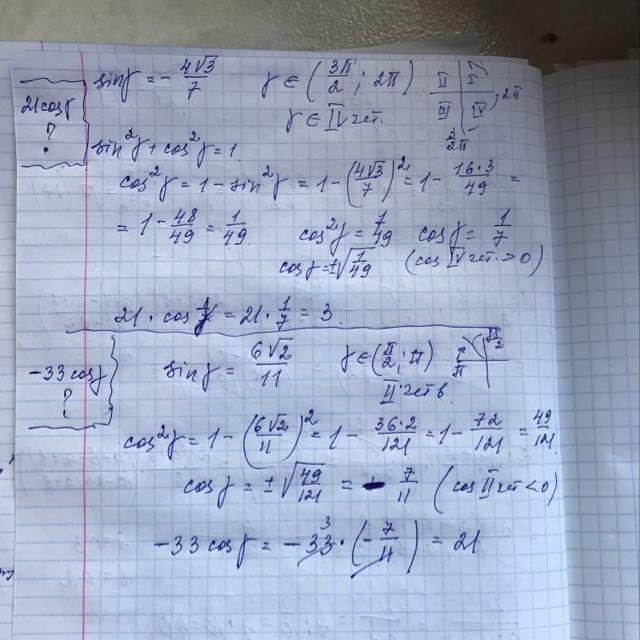 21cosγ
?
sinγ = - 4√3/7 γ ∈ (3π/2; 2π)
γ ∈ IV чет.
II I III IV 2π 3/2π
sin²γ + cos²γ = 1
cos²γ = 1 - sin²γ = 1 - (4√3/7)² = 1 - 16·3/49 =
= 1 - 48/49 = 1/49. cos²γ = 1/49 cosγ = 1/7
cosγ = ±√1/49 (cos IV чет. > 0)
21 · cosγ = 21 · 1/7 = 3.
-33 cosγ
?
sinγ = 6√2/11 γ ∈ (π/2; π)
II четв.
π/2 π
cos²γ = 1 - (6√2/11)² = 1 - 36·2/121 = 1 - 72/121 = 49/121
cosγ = ±√49/121 = - 7/11 (cos II чет < 0)
-33 cosγ = -33³ · (-7/11) = 21